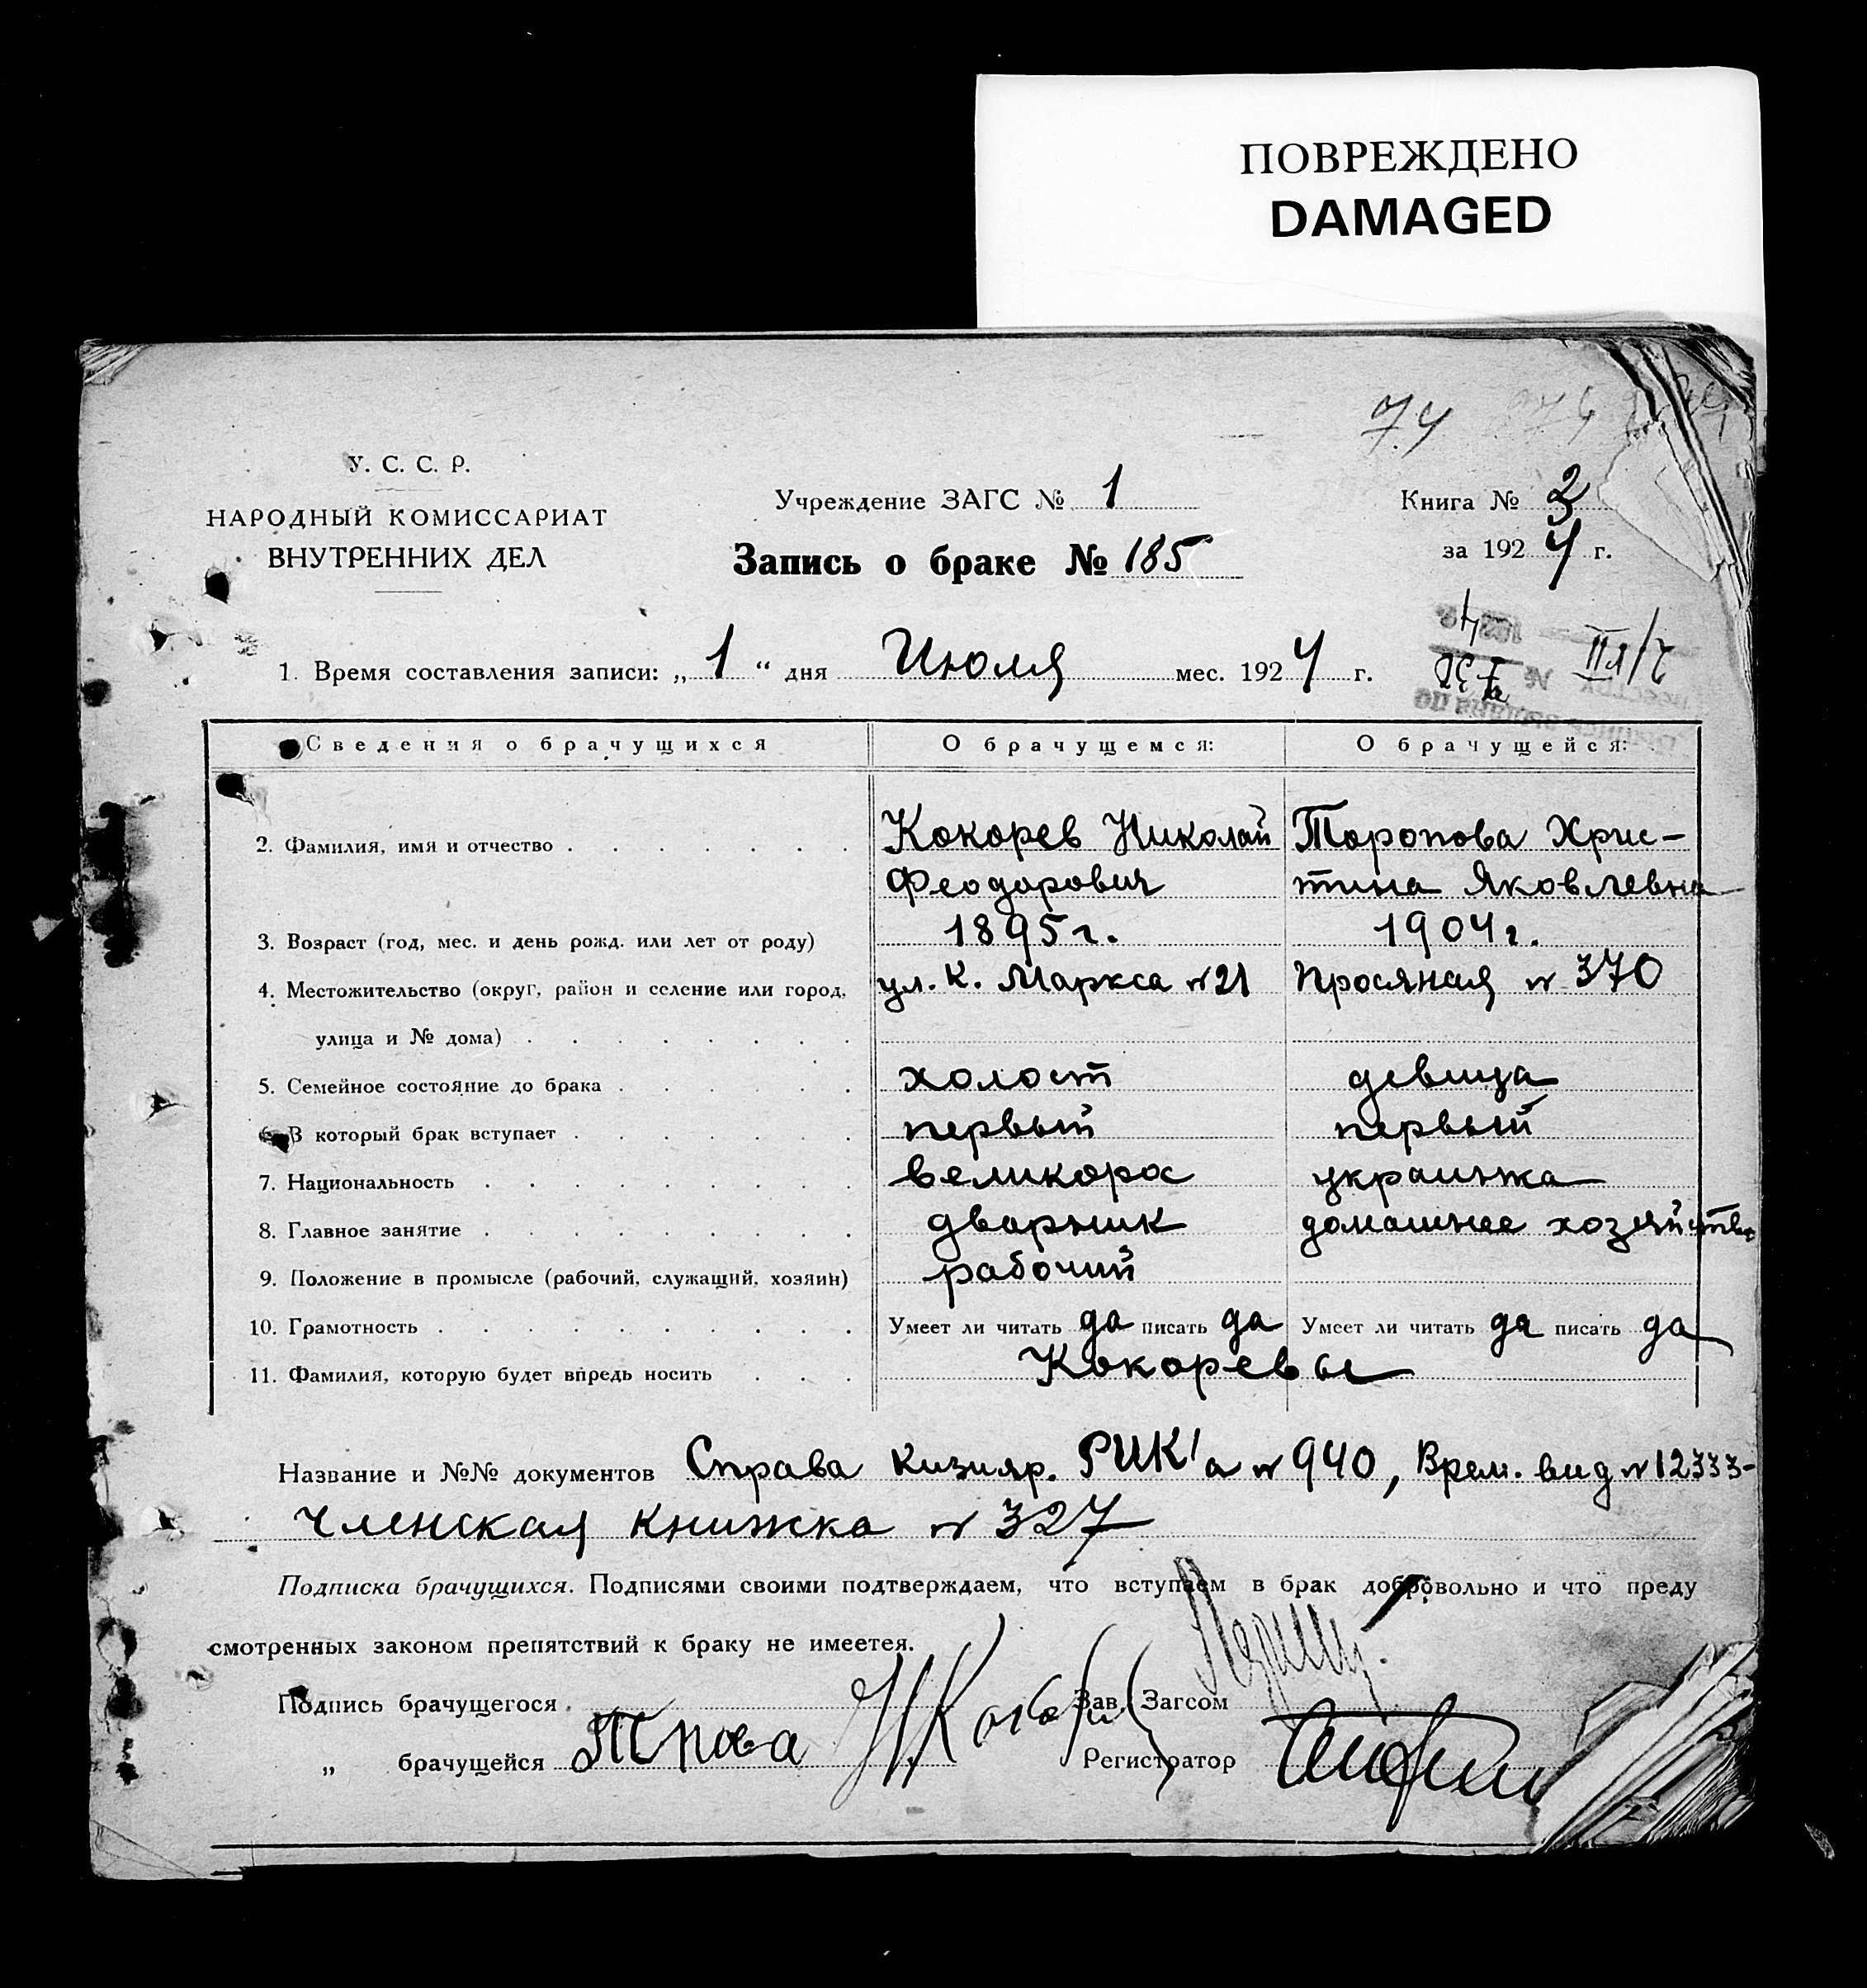 ПОВРЕЖДЕНО
DAMAGED
74
У. С. С. Р.
НАРОДНЫЙ КОМИССАРИАТ
ВНУТРЕННИХ ДЕЛ
Учреждение ЗАГС № 1
Запись о браке № 185
Книга № 2
за 1924 г.
1. Время составления записи: „ 1 “ дня Июля мес. 1924 г.
Сведения о брачущихся О брачущемся: О брачущейся:
2. Фамилия, имя и отчество Кокорев Николай Торопова Хрис-
Феодорович тина Яковлевна
3. Возраст (год, мес. и день рожд. или лет от роду) 1895 г. 1904 г.
4. Местожительство (округ, район и селение или город, ул. К. Маркса № 21 Просяная № 370
улица и № дома)
5. Семейное состояние до брака холост девица
6. В который брак вступает первый первый
7. Национальность великорос украинка
8. Главное занятие дворник домашнее хозяйство
9. Положение в промысле (рабочий, служащий, хозяин) рабочий
10. Грамотность Умеет ли читать да писать да Умеет ли читать да писать да
11. Фамилия, которую будет впредь носить Кокоревы
Название и №№ документов Справа Кизияр. РИК'а № 940, Врем. вид № 12333-
Членская книжка № 327
Подписка брачущихся. Подписями своими подтверждаем, что вступаем в брак добровольно и что преду
смотренных законом препятствий к браку не имеется.
Подпись брачущегося Зав. Загсом
„ брачущейся Регистратор